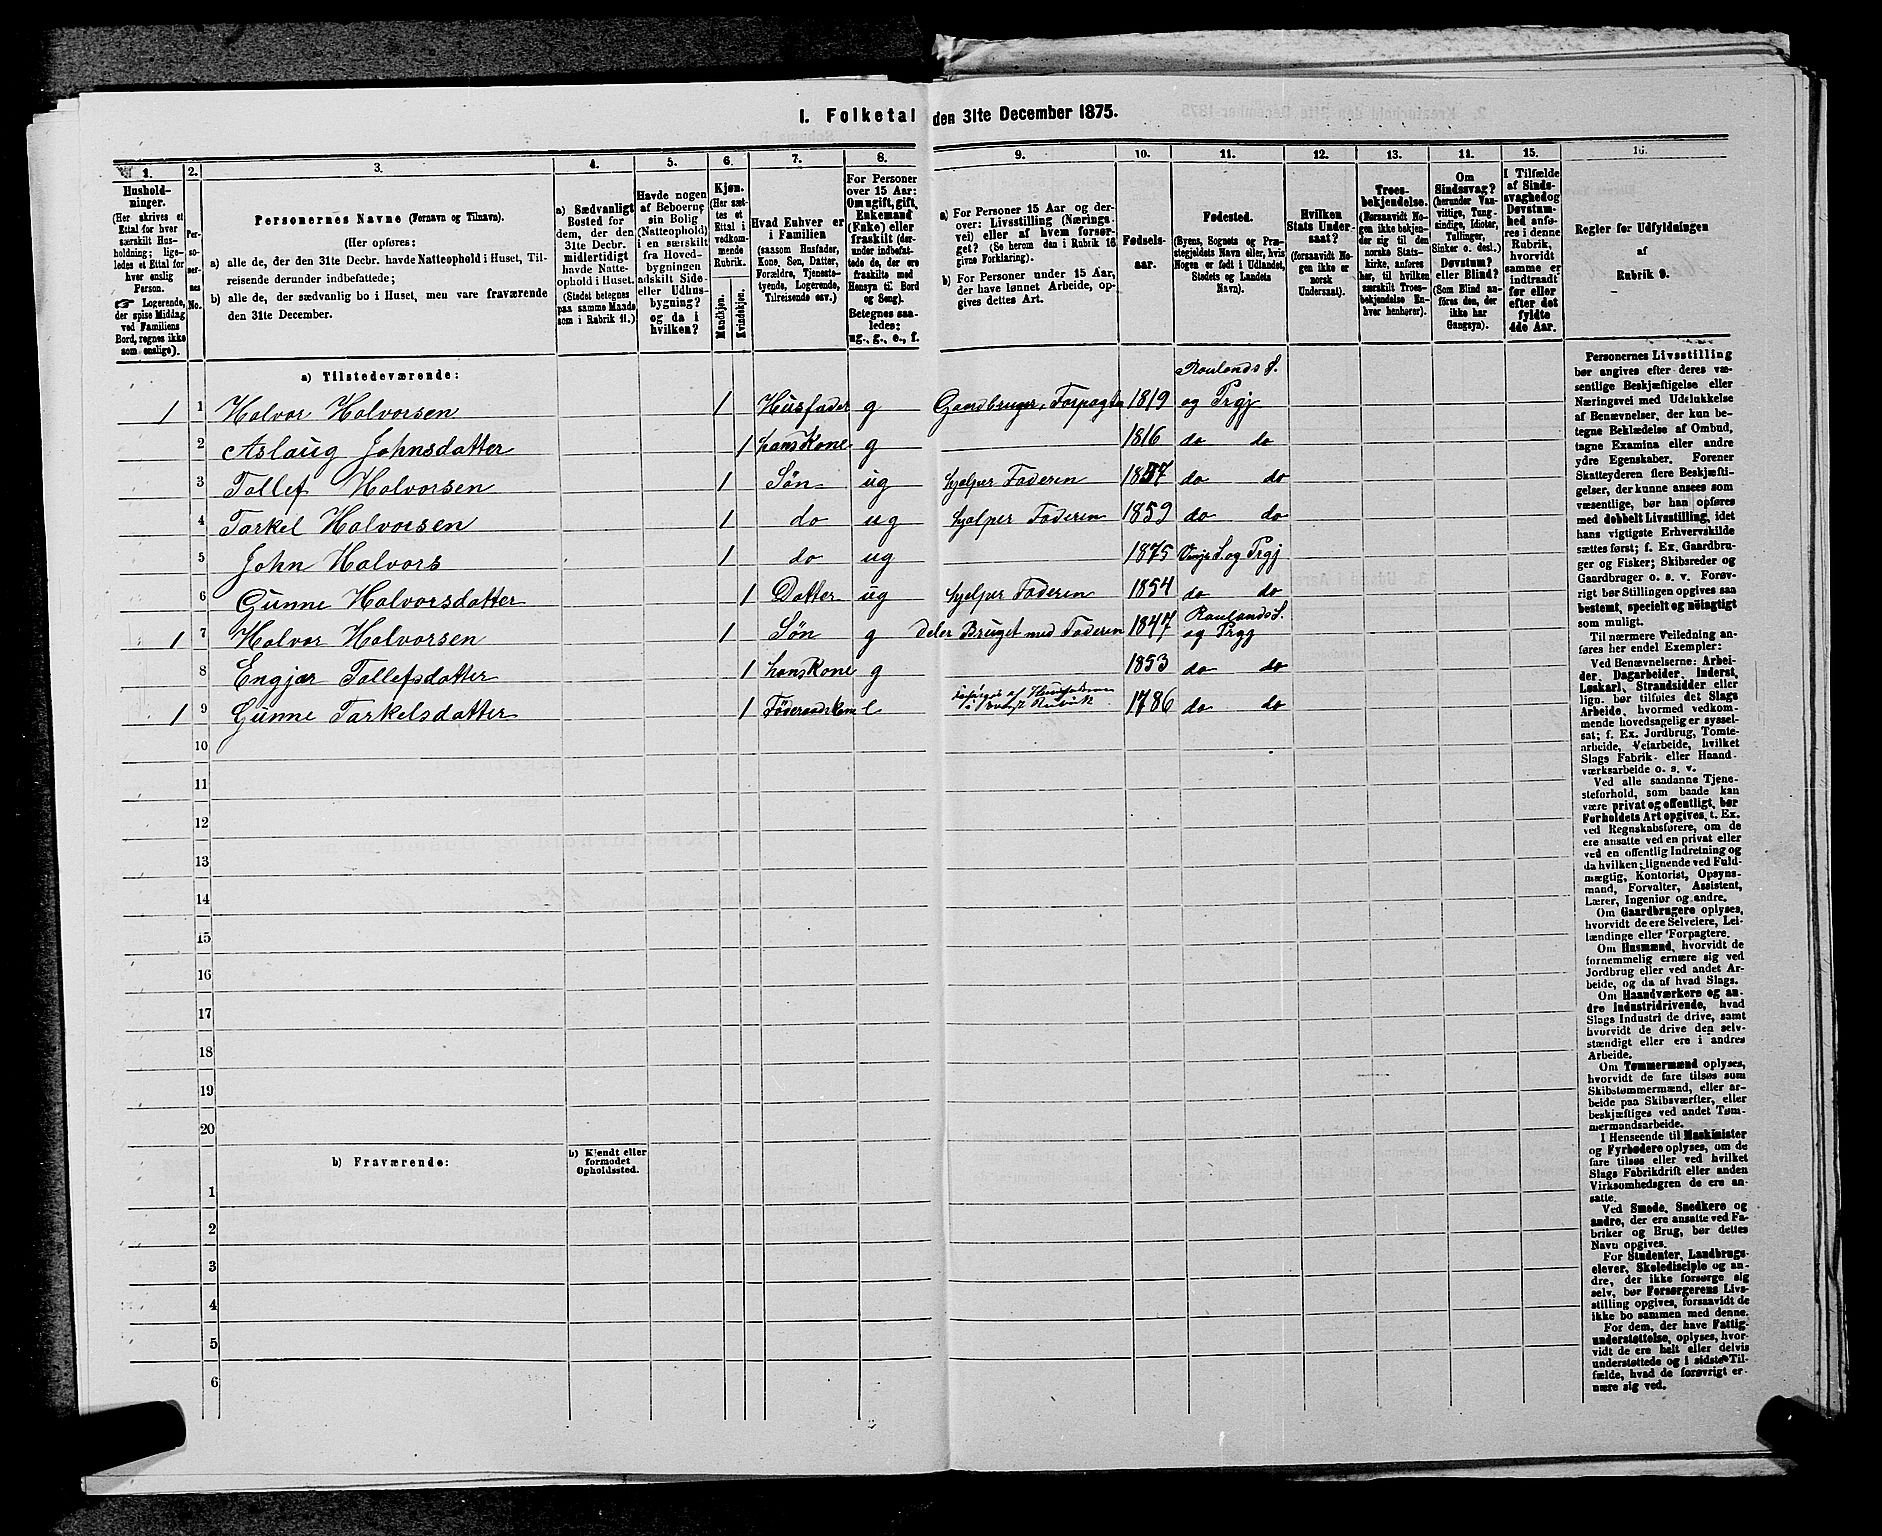 I. Folketal den 31te December 1875.
1. 2. 3. 4. 5. 6. 7. 8. 9. 10. 11. 12. 13. 11. 15. 16.
Hushold-
ninger.
(Her skrives et
Ettal for hver
særskilt Hus-
holdning; lige-
ledes et Ettal for
hver enslig
Person.
☞ Logerende,
der spise Middag
ved Familiens
Bord, regnes ikke
som enslige).
Per-
so-
ner-
nes
No.
Personernes Navne (Fornavn og Tilnavn).
(Her opføres:
a) alle de, der den 31te Decbr. havde Natteophold i Huset, Til-
reisende derunder indbefattede;
b) alle de, der sædvanlig bo i Huset, men vare fraværende
den 31te December.
a) Sædvanligt
Bosted for
dem, der den
31te Decbr.
midlertidigt
havde Natte-
ophold i Huset.
(Stedet betegnes
paa samme Maade
som i Rubrik 11.)
Havde nogen
af Beboerne
sin Bolig
(Natteophold)
i en særskilt
fra Hoved-
bygningen
adskilt Side-
eller Udhus-
bygning?
og da i
hvilken?
Kjøn.
(Her sæt-
tes et
Ettal i
vedkom-
mende
Rubrik.
Mandkjøn.
Kvindekjøn.
Hvad Enhver er
i Familien
(saasom Husfader,
Kone, Søn, Datter,
Forældre, Tjeneste-
tyende, Logerende,
Tilreisende osv.)
For Personer
over 15 Aar:
Om ugift, gift,
Enkemand
(Enke) eller
fraskilt (der-
under indbefat-
tede de, der
ere fraskilte med
Hensyn til Bord
og Seng).
Betegnes saa-
ledes:
ug., g., e., f.
a) For Personer 15 Aar og der-
over: Livsstilling (Nærings-
vei) eller af hvem forsør-
get? (Se herom den i Rubrik 16
givne Forklaring).
b) For Personer under 15 Aar,
der have lønnet Arbeide, op-
gives dettes Art.
Fødsels-
aar.
Fødested.
(Byens, Sognets og Præ-
stegjeldets Navn eller, hvis
Nogen er født i Udlandet,
Stedets og Landets
Navn).
Hvilken
Stats Under-
saat?
(forsaavidt No-
gen ikke er
norsk
Undersaat).
Troes-
bekjendelse.
(Forsaavidt No-
gen ikke bekjen-
der sig til den
norske Stats-
kirke, anføres
her, til hvilken
særskilt Troes-
bekjendelse En-
hver henhører).
Om
Sindssvag?
(herunder Van-
vittige, Tung-
sindige, Idioter,
Tullinger,
Sinker o. desl.)
Døvstum?
eller Blind?
(Som Blind an-
føres den, der
ikke har
Gangsyn).
I Tilfælde
af Sinds-
svaghed og
Døvstum-
hed anfø-
res i denne
Rubrik,
hvorvidt
samme er
indtraadt
før eller
efter det
fyldte
4de Aar.
Regler for Udfyldningen
af
Rubrik 9.
a) Tilstedeværende:
1 1 Halvor Halvorsen 1 Husfader g Gaardbruger, Forpagter 1819 Raulands S. og Prgj
2 Aslaug Johnsdatter 1 hans Kone g 1816 do do
3 Tollef Halvorsen 1 Søn ug hjelper Faderen 1857 do do
4 Tarkel Halvorsen 1 do ug hjelper Faderen 1859 do do
5 John Halvors 1 do ug 1875 Vinje S. og Prgj
6 Gunne Halvorsdatter 1 Datter ug hjelper Faderen 1854 do do
1 7 Halvor Halvorsen 1 Søn g deler Bruget med Faderen 1847 Raulands S. og Prgj
8 Engjær Tollefsdatter 1 hans Kone g 1853 do do
1 9 Gunne Tarkelsdatter 1 e af Rubrik 1786 do do
10
11
12
13
14
15
16
17
18
19
20
b) Fraværende:
b) Kjendt eller
formodet
Opholdssted.
1
2
3
4
5
6
Personernes Livsstilling
bør angives efter deres væ-
sentlige Beskjæftigelse eller
Næringsvei med Udelukkelse
af Benævnelser, der kun be-
tegne Beklædelse af Ombud,
tagne Examina eller andre
ydre Egenskaber. Forener
Skatteyderen flere Beskjæfti-
gelser, der kunne ansees som
væsentlige, bør han opføres
med dobbelt Livsstilling, idet
hans vigtigste Erhvervskilde
sættes først; f. Ex. Gaardbru-
ger og Fisker; Skibsreder og
Gaardbruger o. s. v. Forøv-
rigt bør Stillingen opgives saa
bestemt, specielt og nøiagtigt
som muligt.
Til nærmere Veiledning an-
føres her endel Exempler:
Ved Benævnelserne: Arbei-
der, Dagarbeider, Inderst,
Løskarl, Strandsidder eller
lign. bør tilføies det Slags
Arbeide, hvormed vedkom-
mende hovedsagelig er syssel-
sat; f. Ex. Jordbrug, Tomte-
arbeide, Veiarbeide, hvilket
Slags Fabrik- eller Haand-
værksarbeide o. s. v.
Ved alle saadanne Tjene-
steforhold, som baade kan
være privat og offentligt, bør
Forholdets Art opgives, t. Ex.
ved Regnskabsførere, om de
ere ansatte ved en privat eller
ved en offentlig Indretning og
da hvilken; lignende ved Fuld-
mægtig, Kontorist, Opsyns-
mand, Forvalter, Assistent,
Lærer, Ingeniør og andre.
Om Gaardbrugere oplyses,
hvorvidt de ere Selveiere, Lei-
lændinge eller Forpagtere.
Om Husmænd, hvorvidt de
fornemmelig ernære sig ved
Jordbrug eller ved andet Ar-
beide, og da af hvad Slags.
Om Haandværkere og an-
dre Industridrivende, hvad
Slags Industri de drive, samt
hvorvidt de drive den selv-
stændigt eller ere i andres
Arbeide.
Om Tømmermænd oplyses,
hvorvidt de fare tilsøs som
Skibstømmermænd, eller ar-
beide paa Skibsværfter, eller
beskjæftiges ved andet Tøm-
mermandsarbeide.
I Henseende til Maskinister
og Fyrbødere oplyses, om de
fare tilsøs eller ved hvilket
Slags Fabrikdrift eller anden
Virksomhedsgren de ere an-
satte.
Ved Smede, Snedkere og
andre, der ere ansatte ved Fa-
briker og Brug, bør dettes
Navn opgives.
For Studenter, Landbrugs-
elever, Skoledisciple og an-
dre, der ikke forsørge sig
selv, bør Forsørgerens Livs-
stilling opgives, forsaavidt de
ikke bo sammen med denne.
For dem, der have Fattig-
understøttelse, oplyses, hvor-
vidt de ere helt eller delvis
understøttede og i sidste Til-
fælde, hvad de forøvrigt er-
nære sig ved.